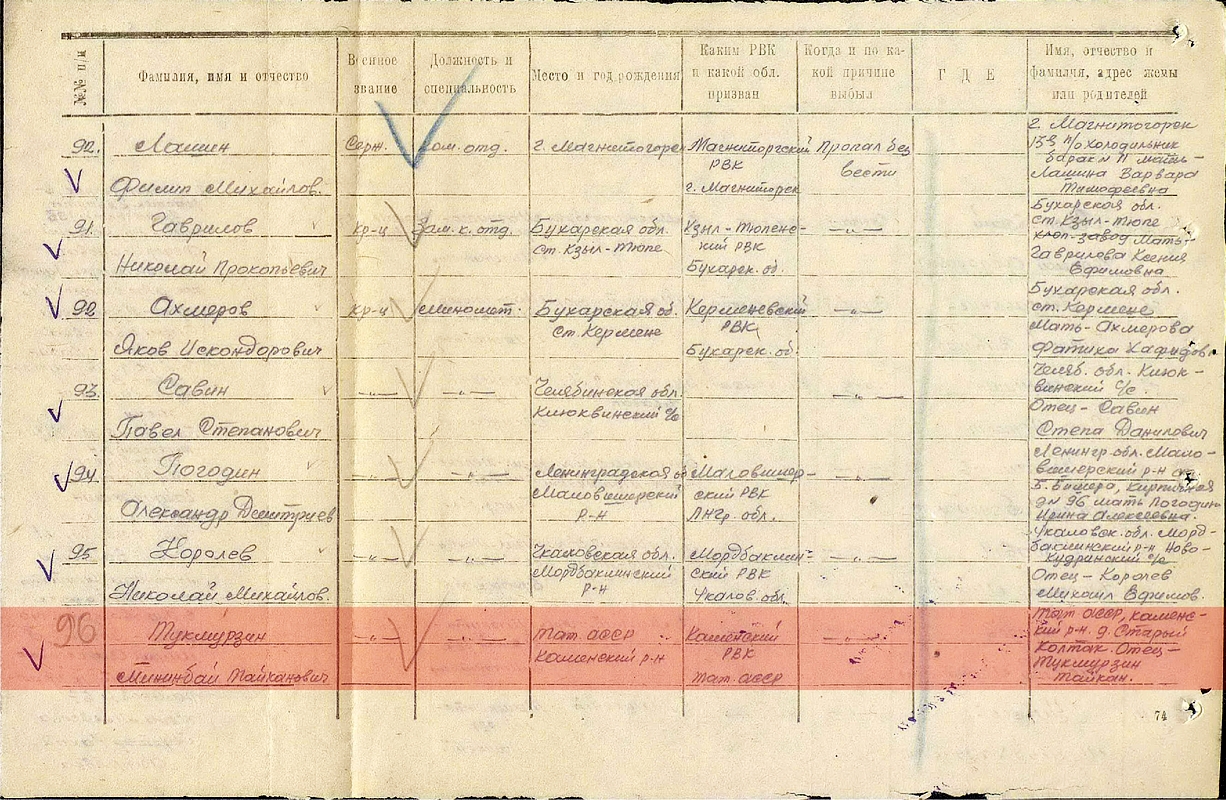 №№ п/п
Фамилия, имя и отчество
Военное
звание
Должность и
специальность
Место и год рождения
Каким РВК
и какой обл.
призван
Когда и по ка-
кой причине
выбыл
Г Д Е
Имя, отчество и
фамилия, адрес жены
или родителей
92.
Лашин
Филип Михайлов.
Серж.
Ком. отд.
г. Магнитогорск
Магниторгский
РВК
г. Магниторск
Пропал без
вести
г. Магнитогорск
п/о Холодильник
барак № 11 мать-
Лашина Варвара
Тимофеевна
91.
Гаврилов
Николай Прокопьевич
кр-ц
Зам. к. отд.
Бухарская обл.
ст. Кзыл-Тюпе
Кзыл-Тюпенс-
кий РВК
Бухарск. об.
—„—
Бухарская обл.
ст. Кзыл-Тюпе
хлоп-завод Мать-
Гаврилова Ксения
Ефимовна
92.
Ахмеров
Яков Искондорович
кр-ц
миномет.
Бухарская об.
ст. Кермене
Керменевский
РВК
Бухарск. об.
—„—
Бухарская обл.
ст. Кермене
Мать-Ахмерова
Фатиха Хафидов.
93.
Савин
Павел Степанович
—„—
—„—
Челябинская обл.
Клюквинский с/с
—„—
Челяб. обл. Клюк-
винский с/с.
Отец - Савин
Степа Данилович
94
Погодин
Александр Дмитриев
—„—
—„—
Ленинградская об
Маловишерский
р-н
Маловишер-
ский РВК
ЛНгр. обл.
—„—
Ленингр. обл. Мало-
вишерский р-н ст.
Б. Вишера, Кирпичная
дм 96 мать Погодин
Ирина Алексеевна.
95
Королев
Николай Михайлов.
—„—
—„—
Чкаловская обл.
Мордбаклинский
р-н
Мордбаклин-
ский РВК
Чкалов. обл.
—„—
Чкаловск. обл. Морд-
баклинский р-н Ново-
Кудринский с/с
Отец - Королев
Михаил Ефимов.
96
Тукмурзин
Мининбай Тайканович
—„—
—„—
Тат. АССР
Каменский р-н
Каменский
РВК
Тат. АССР
—„—
Тат АССР, Каменс-
кий р-н. д. Старый
Колтак. Отец-
Тукмурзин
Тайкан.
74